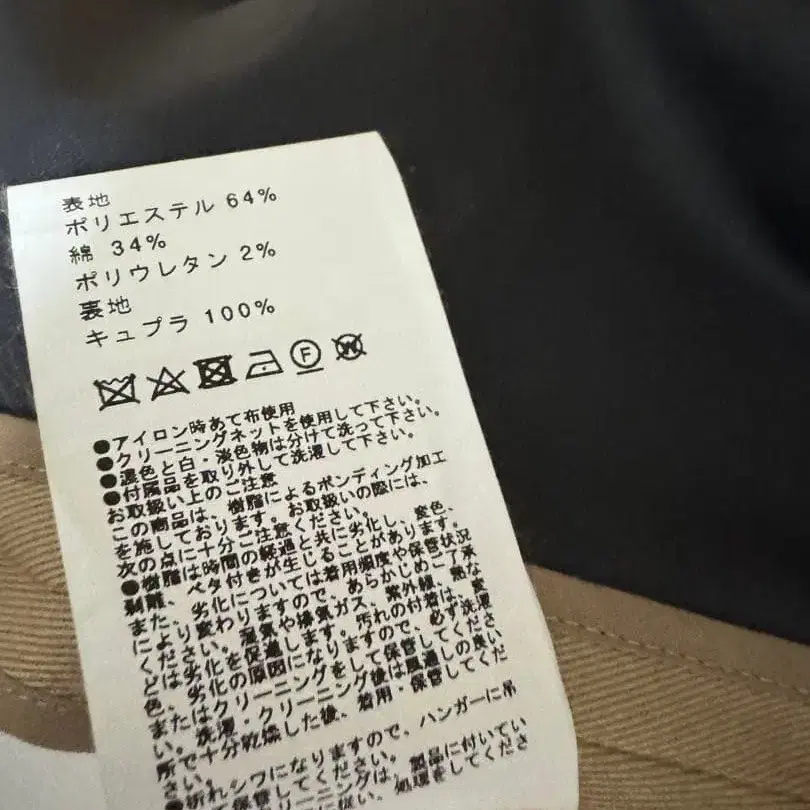 表地
ポリエステル 64%
綿 34%
ポリウレタン 2%
裏地
キュプラ 100%
F
W
●アイロン時あて布使用
●クリーニングネットを使用して下さい。
●濃色と白・淡色物は分けて洗って下さい。
●付属品を取り外して洗濯して下さい。
お取扱い上のご注意
この商品は、樹脂によるボンディング加工
を施しております。お取扱いの際には、
次の点に十分ご注意ください。
●樹脂は時間の経過と共に劣化し、変色、
剥離、ベタ付きが生じることがあります。
また、劣化については着用頻度や保管状況
により変わりますので、あらかじめご了承
ください。湿気や排気ガス、紫外線、熱な
どは劣化を促進します。汚れの付着は、変
色、劣化の原因になりますので、必ず洗濯
またはクリーニングをして保管してくださ
い。洗濯・クリーニング後は風通しの良い
所で十分乾燥した後、着用・保管してくだ
さい。
●折れシワになりますので、ハンガーに吊
保管してください。
ーニングは、製品に付いてい
に従い、処理をしてくださ